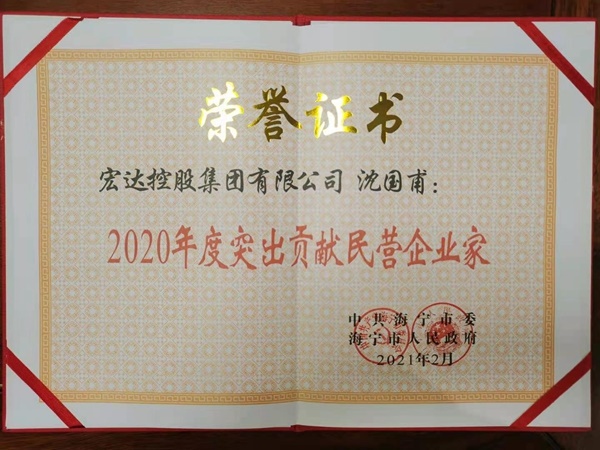 荣誉证书
宏达控股集团有限公司 沈国甫：
2020年度突出贡献民营企业家
中共海宁市委
海宁市人民政府
2021年2月